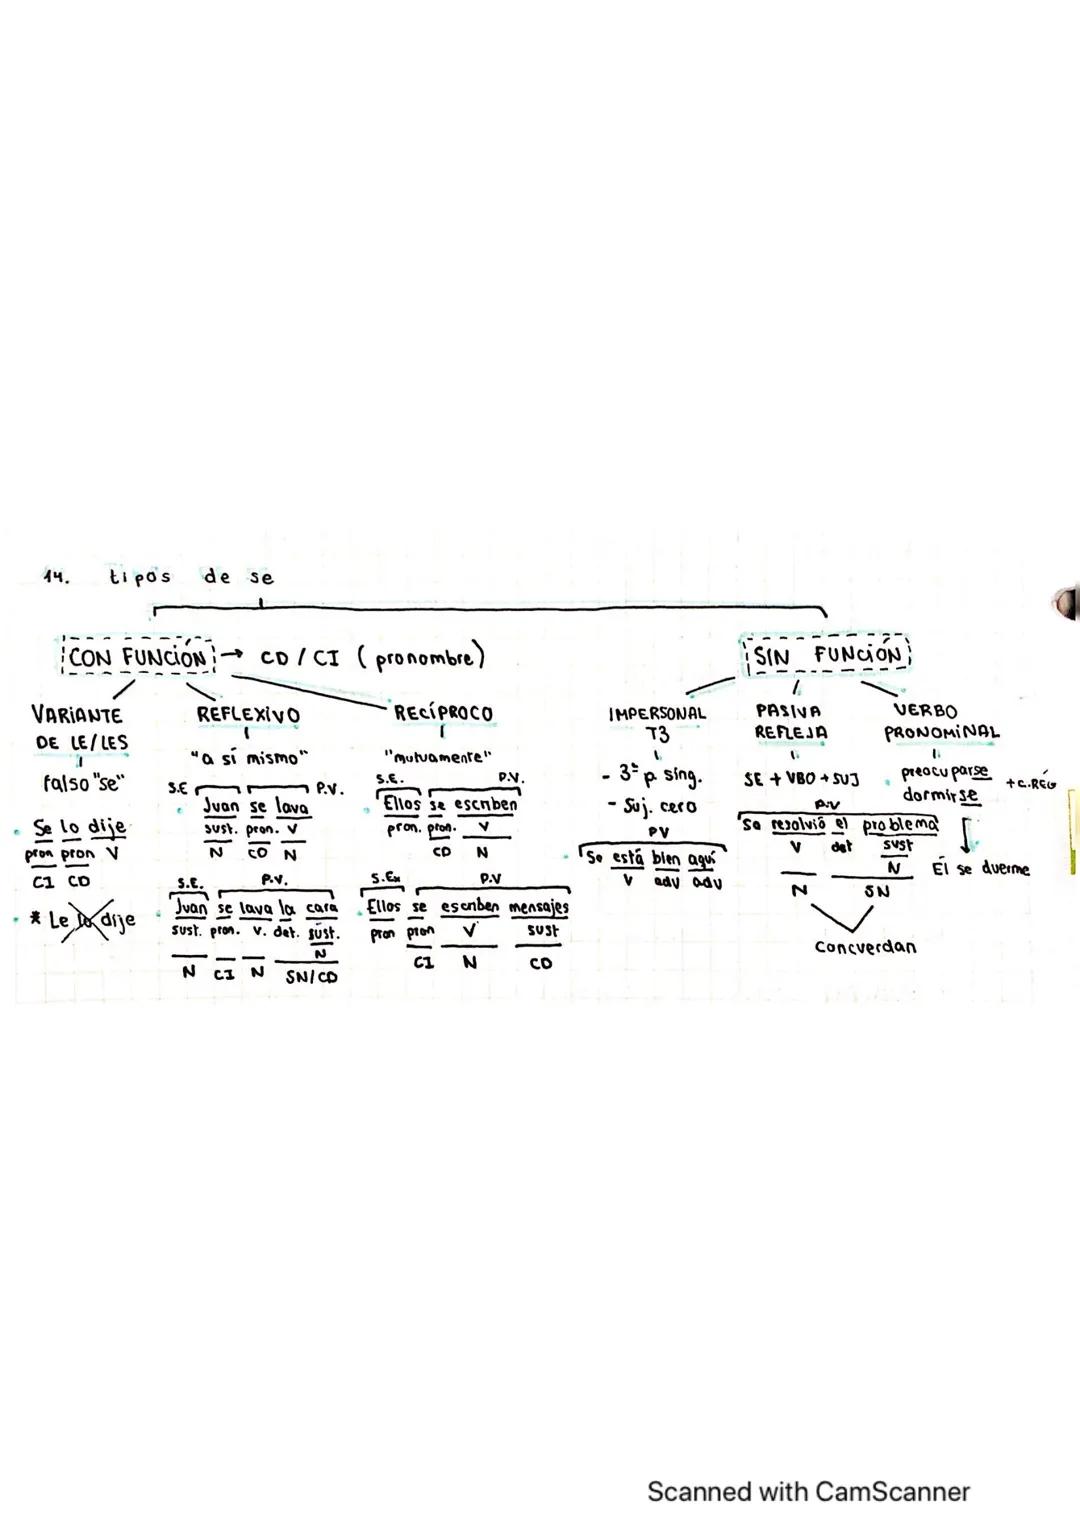 14. tipos de se
CON FUNCIÓN → CD / CI (pronombre)
SIN FUNCIÓN
VARIANTE
DE LE/LES
falso "se"
Se lo dije
pron pron V
CI CD
* Le lo dije
REFLEXIVO
"a sí mismo"
S.E P.V.
Juan se lava
sust. pron. V
N CD N
S.E. P.V.
Juan se lava la cara
sust. pron. v. det. sust.
N
N CI N SN/CD
RECÍPROCO
"mutuamente"
S.E. P.V.
Ellos se escriben
pron. pron. V
CD N
S.Ex P.V
Ellos se escriben mensajes
pron pron V sust
CI N CD
IMPERSONAL
T3
- 3ª p. sing.
- Suj. cero
PV
Se está bien aquí
V adv adv
PASIVA
REFLEJA
SE + VBO + SUJ
P.V
Se resolvió el problema
V det sust
N
N SN
Concuerdan
VERBO
PRONOMINAL
preocuparse + C.RÉG
dormirse
Él se duerme
Scanned with CamScanner